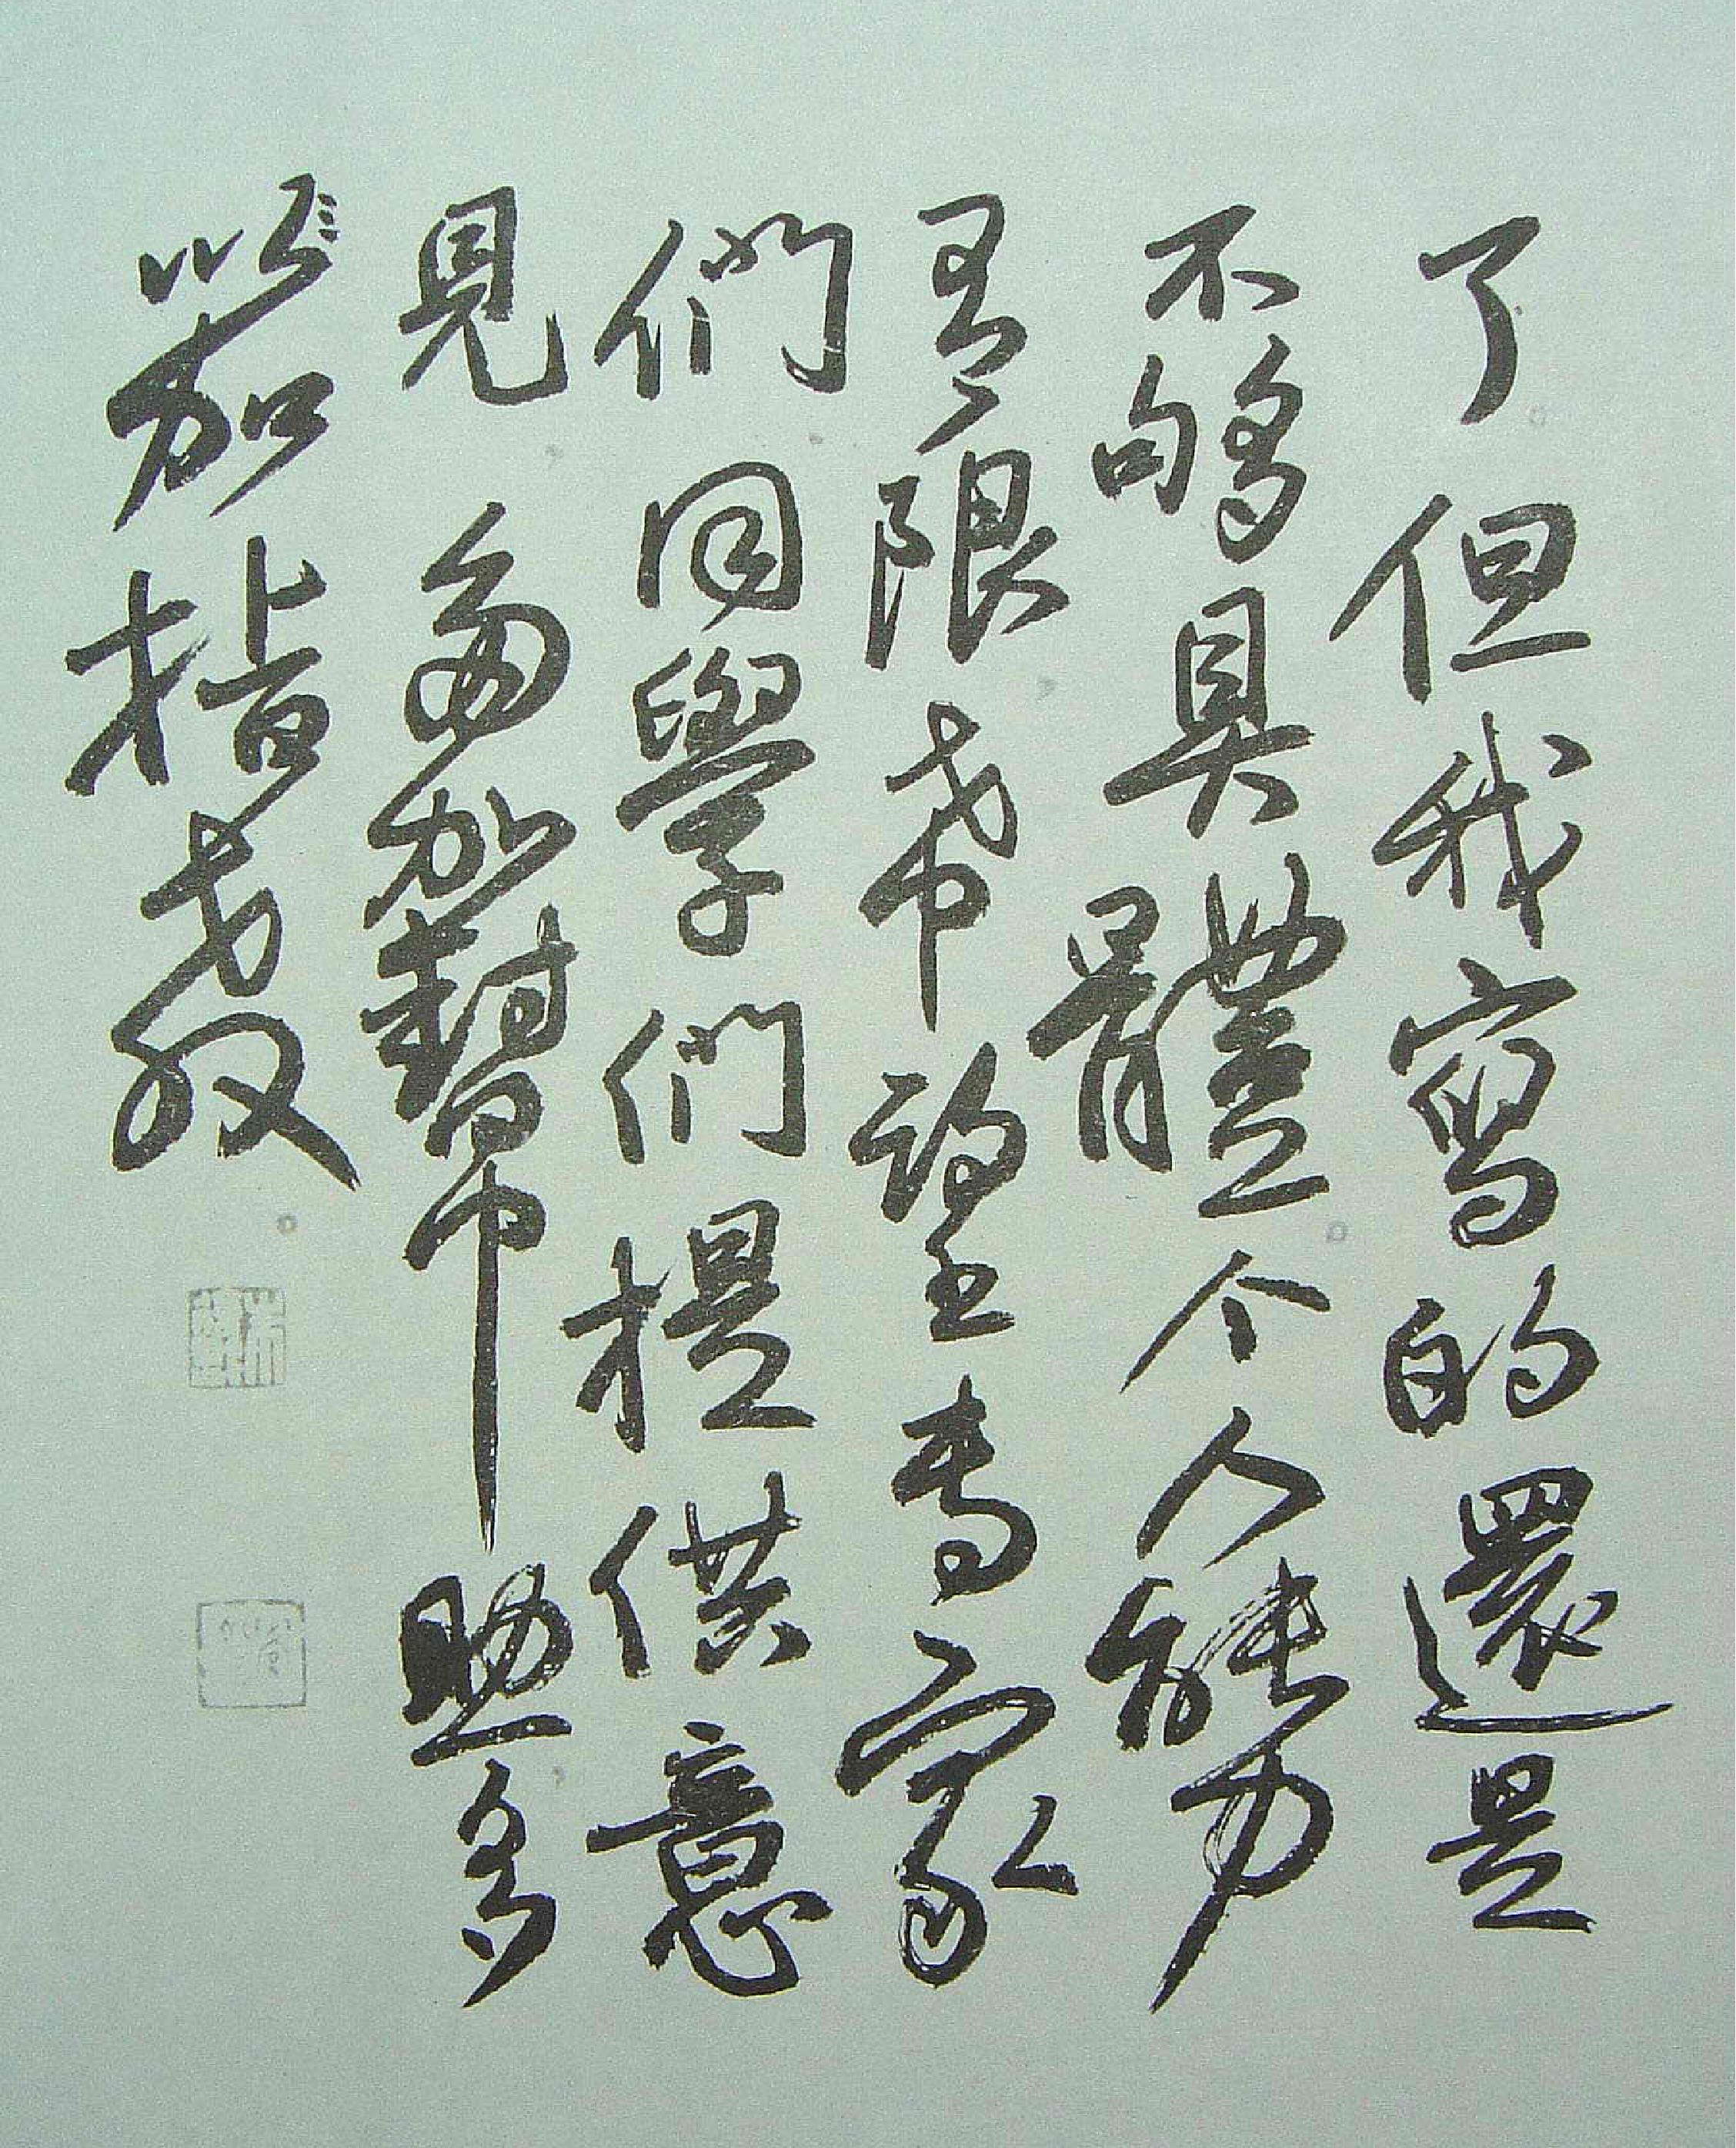 了。但我寫的還是
不够具體。个人能力
有限，希望專家
們，同學們提供意
見，多加幫助，多
加指教。